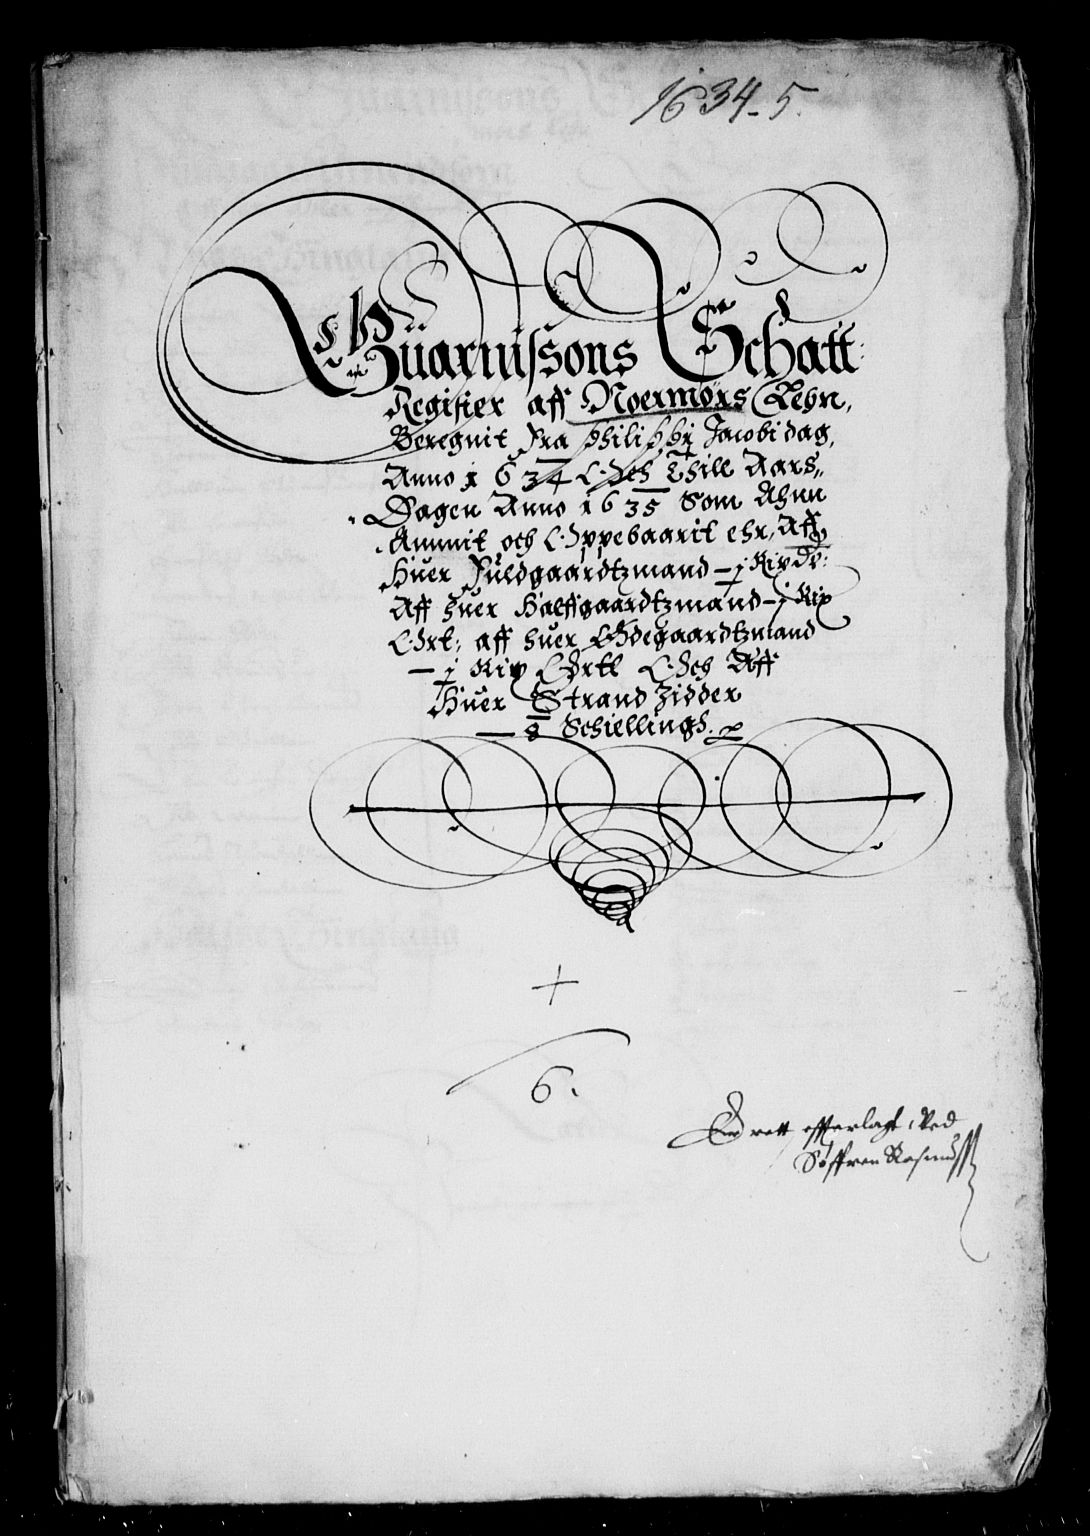 1634-5.
Guarnissons Schatt
Register aff Noermørs Lehn,
Beregnit fra Philippi Jacobi dag,
Anno 1634 Och Thill Aars,,
Dagen Anno 1635 Som Ahnn
Ammit och Oppebaarit ehr, Aff
Huer Fuldgaardtzmand – j Rixdr:
Aff huer Halffgaardtzmand – j Rix
Ort: aff huer Ødegaardtzmand
– j Rix Ortt Och Aff
Huer Strand Zidder
– 8 Schiellingh.
+
6.
rett effterlagt, Ved
Søffren Rasmuss